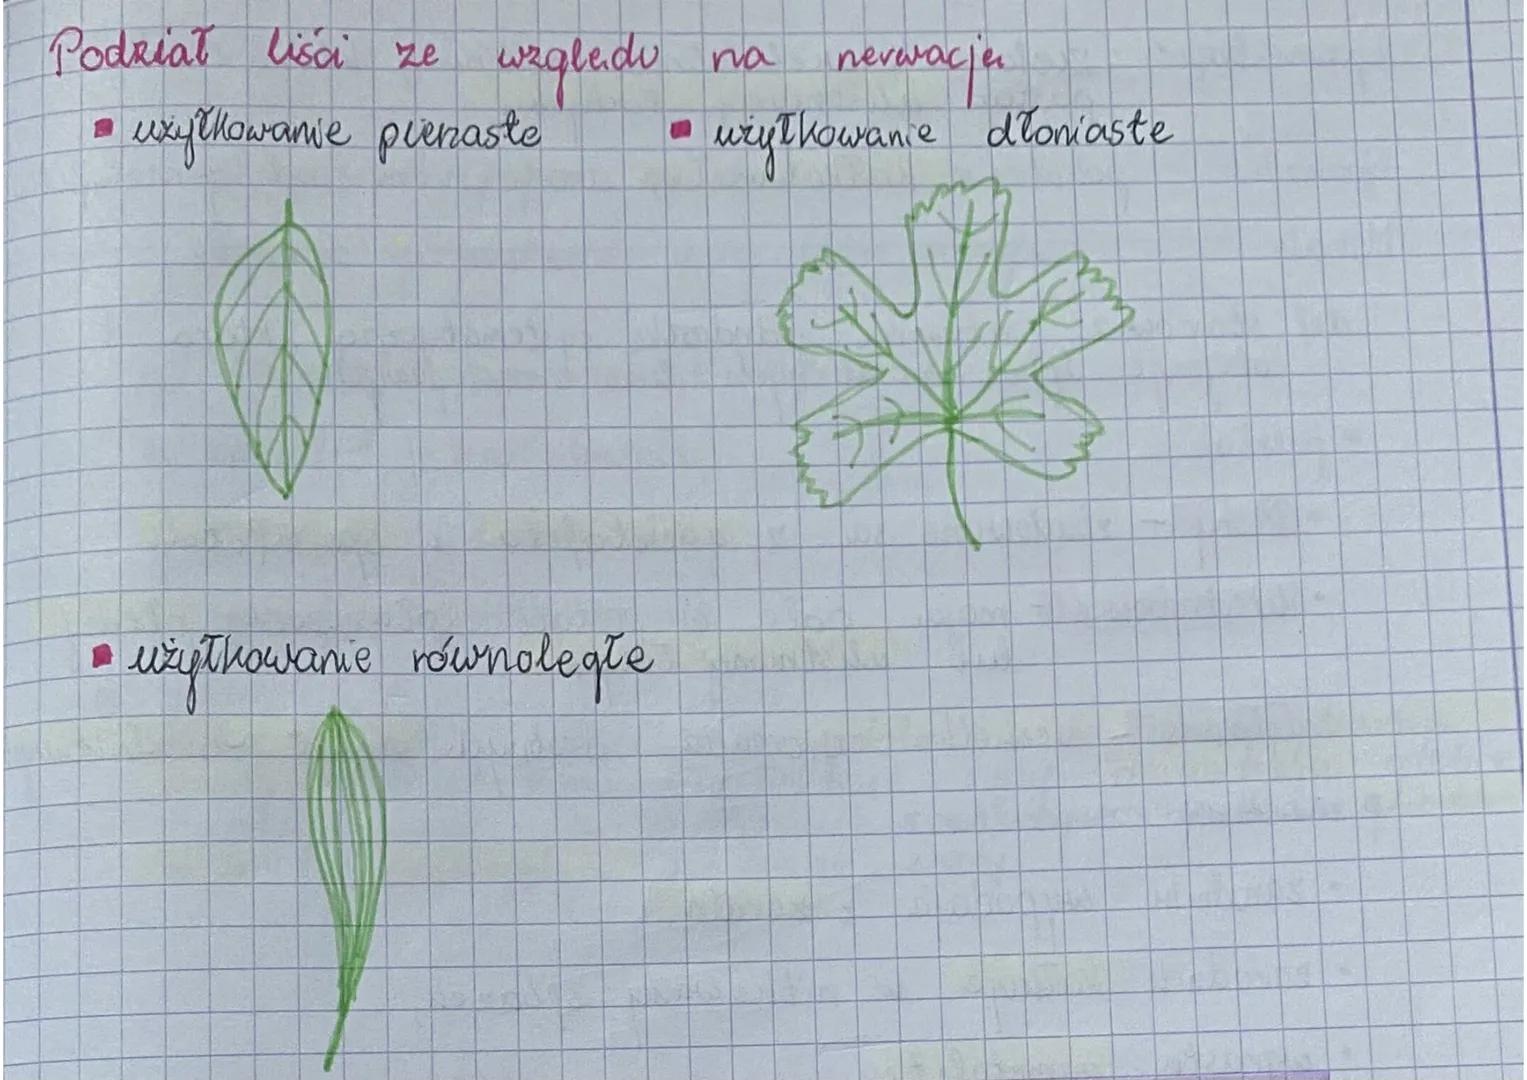 Podział liści ze względu na nerwację
użyłkowanie pierzaste
użyłkowanie dłoniaste
użyłkowanie równoległe